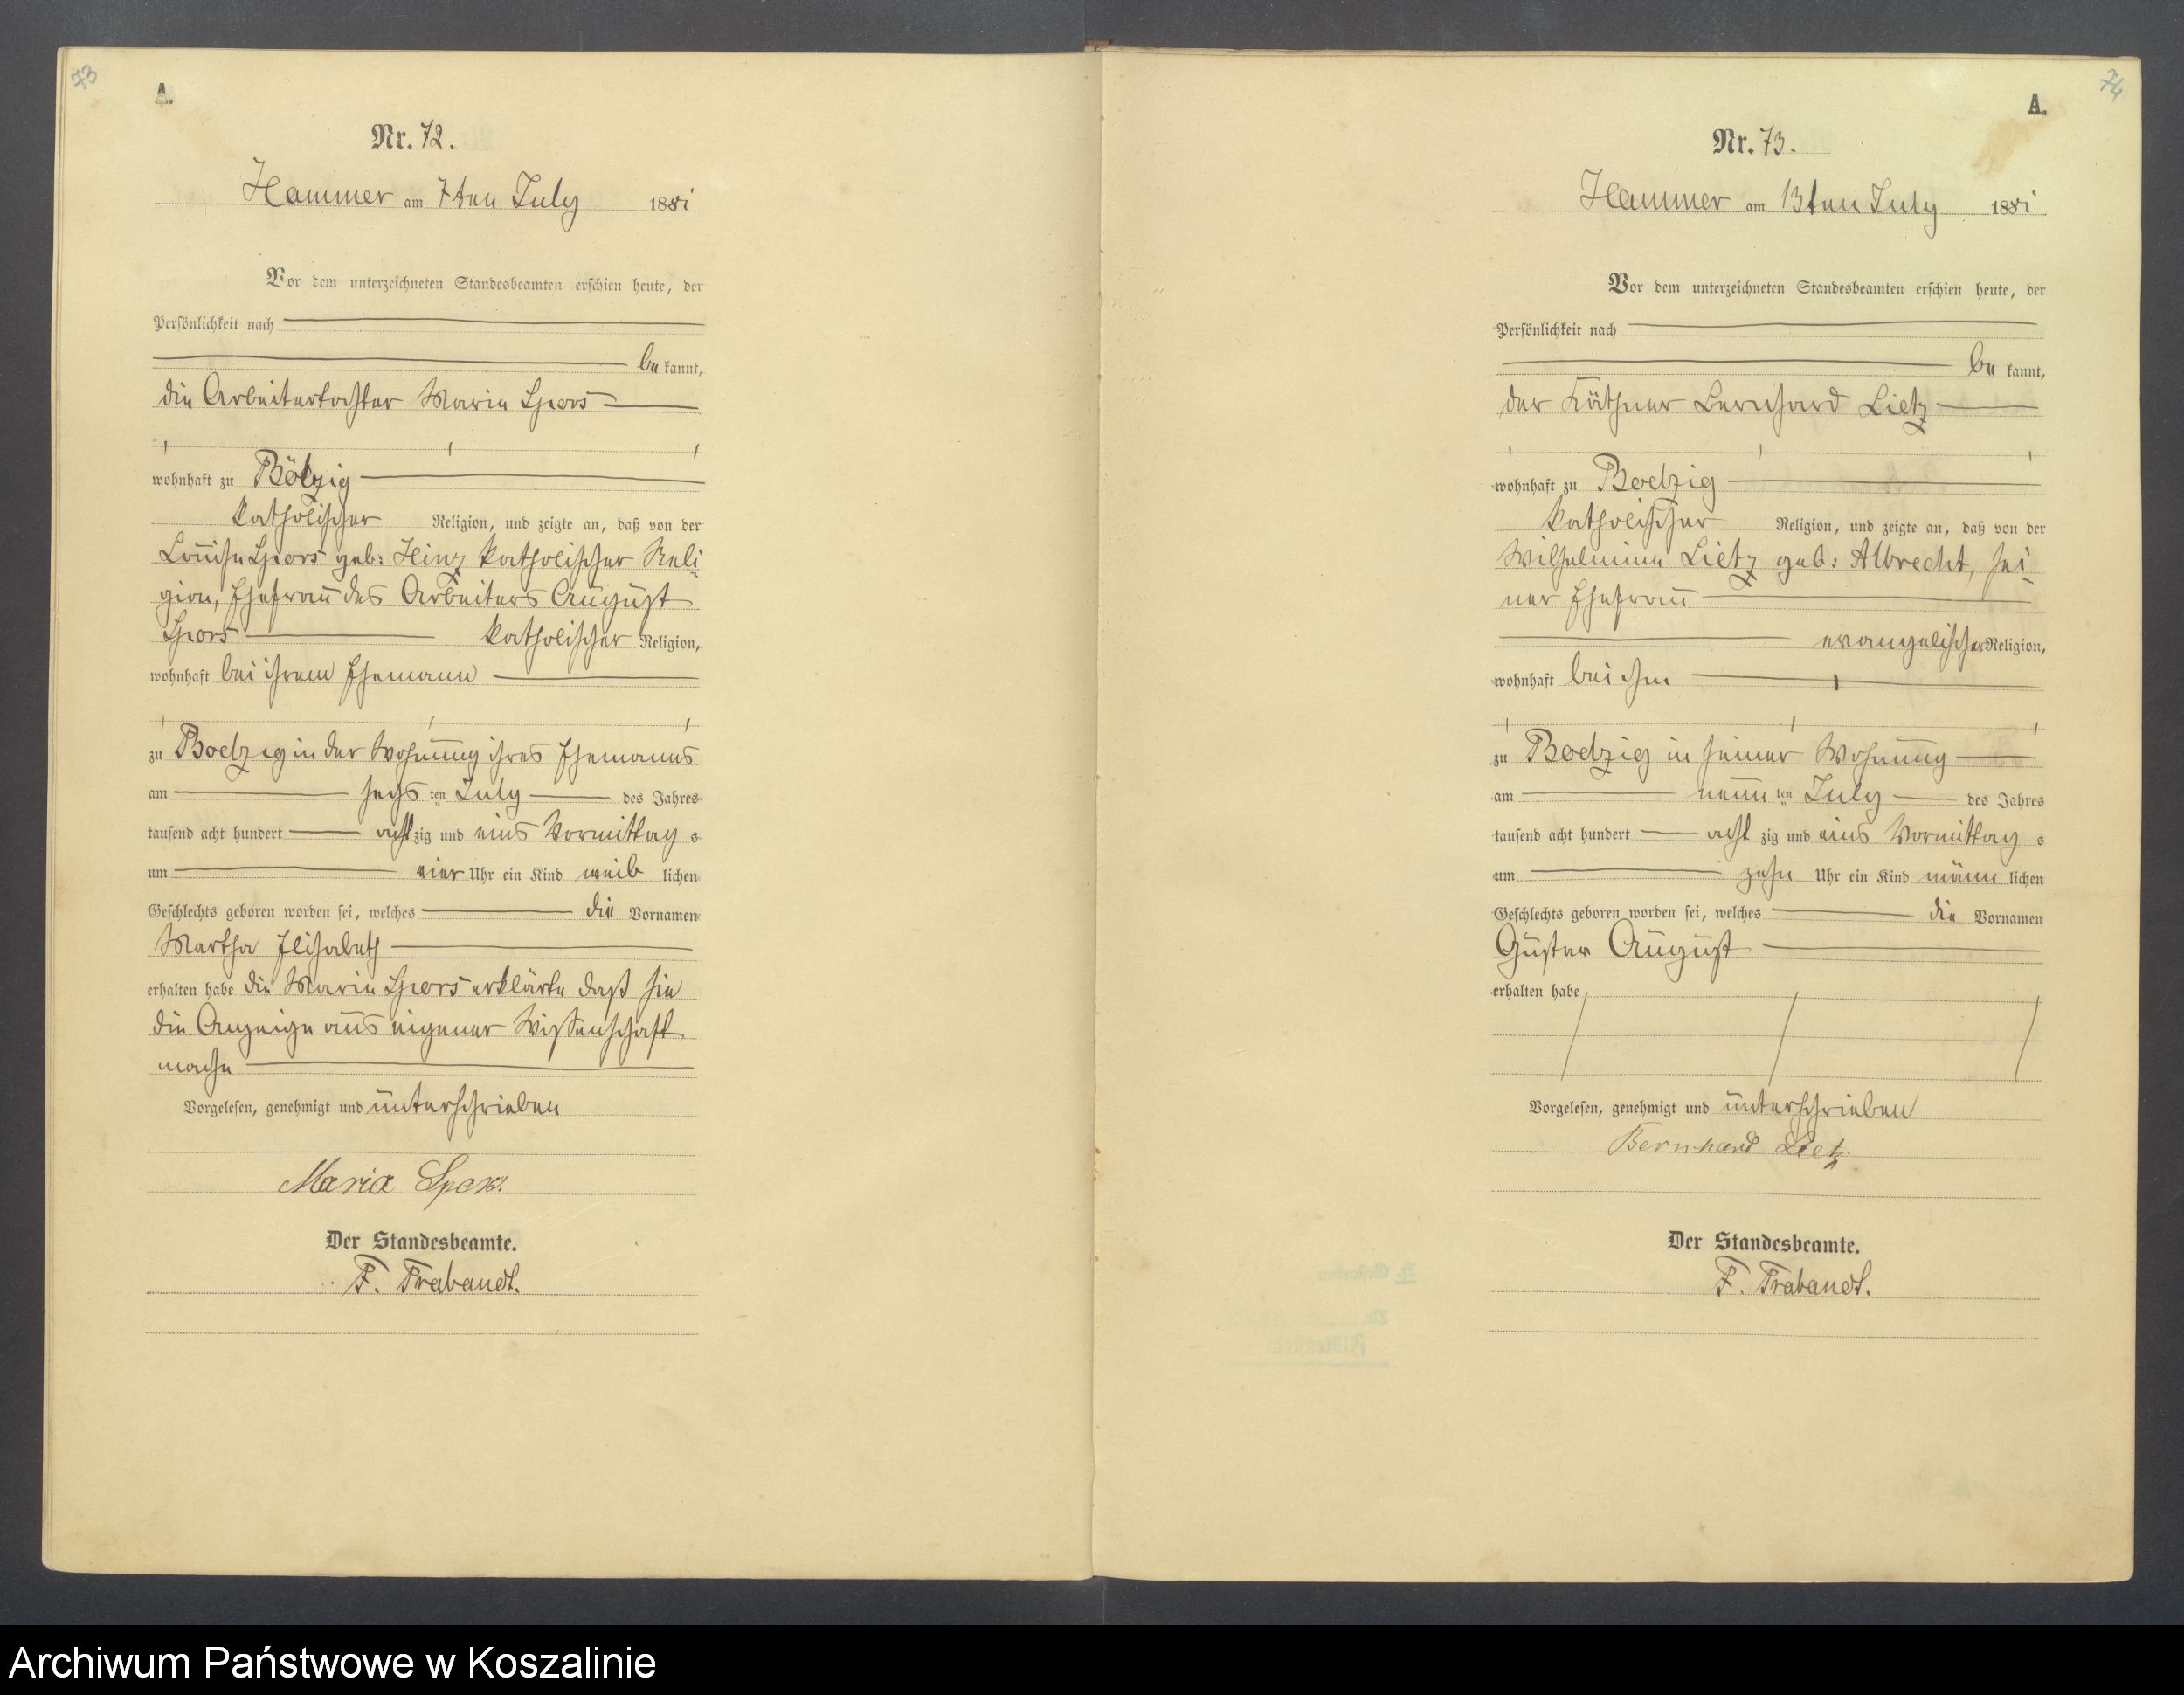 73
A.
Nr. 72.
Hammer am 7ten July 1881
Vor dem unterzeichneten Standesbeamten erschien heute, der
Persönlichkeit nach
be kannt,
die Arbeitertochter Marie Spors
wohnhaft zu Bölzig
katholischer Religion, und zeigte an, daß von der
Louise Spors geb: Hinz katholischer Reli
gion, Ehefrau des Arbeiters August
Spors katholischer Religion,
wohnhaft bei ihrem Ehemann
zu Boelzig in der Wohnung ihres Ehemanns
am sechs ten July des Jahres
tausend acht hundert acht zig und eins Vormittag s
um vier Uhr ein Kind weib lichen
Geschlechts geboren worden sei, welches die Vornamen
Martha Elisabeth
erhalten habe die Marie Spors erklärte daß sie
die Anzeige aus eigener Wissenschaft
mache
Vorgelesen, genehmigt und unterschrieben
Maria Spors.
Der Standesbeamte.
F. Trabandt.
74
A.
Nr. 73.
Hammer am 13ten July 1881
Vor dem unterzeichneten Standesbeamten erschien heute, der
Persönlichkeit nach
be kannt,
der Käthner Bernhard Lietz
wohnhaft zu Boelzig
katholischer Religion, und zeigte an, daß von der
Wilhelmine Lietz geb: Albrecht, sei
ner Ehefrau
evangelischer Religion,
wohnhaft bei ihm
zu Boelzig in seiner Wohnung
am neun ten July des Jahres
tausend acht hundert acht zig und eins Vormittag s
um zehn Uhr ein Kind männ lichen
Geschlechts geboren worden sei, welches die Vornamen
Gustav August
erhalten habe
Vorgelesen, genehmigt und unterschrieben
Bernhard Lietz
Der Standesbeamte.
F. Trabandt.
Archiwum Państwowe w Koszalinie